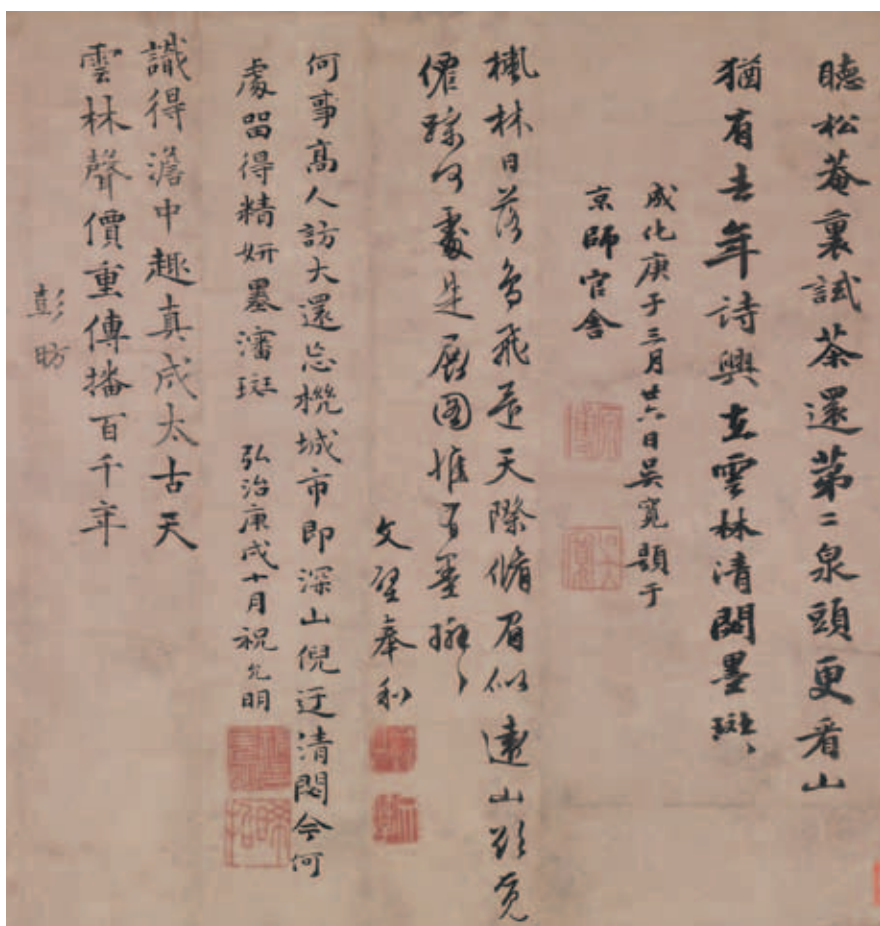 聽松菴裏試茶還第二泉頭更看山
猶有去年詩興在雲林清閟墨斑斑
成化庚子三月廿六日吳寬題于
京師官舍
楓林日落鳥飛還天際脩眉似遠山欲覓
僊蹤何處是展圖惟有墨斑斑
文壁奉和
何事高人訪大還忘機城市即深山倪迂清閟今何
處畱得精妍墨瀋斑
弘治庚戌十月祝允明
識得澹中趣真成太古天
雲林聲價重傳播百千年
彭昉